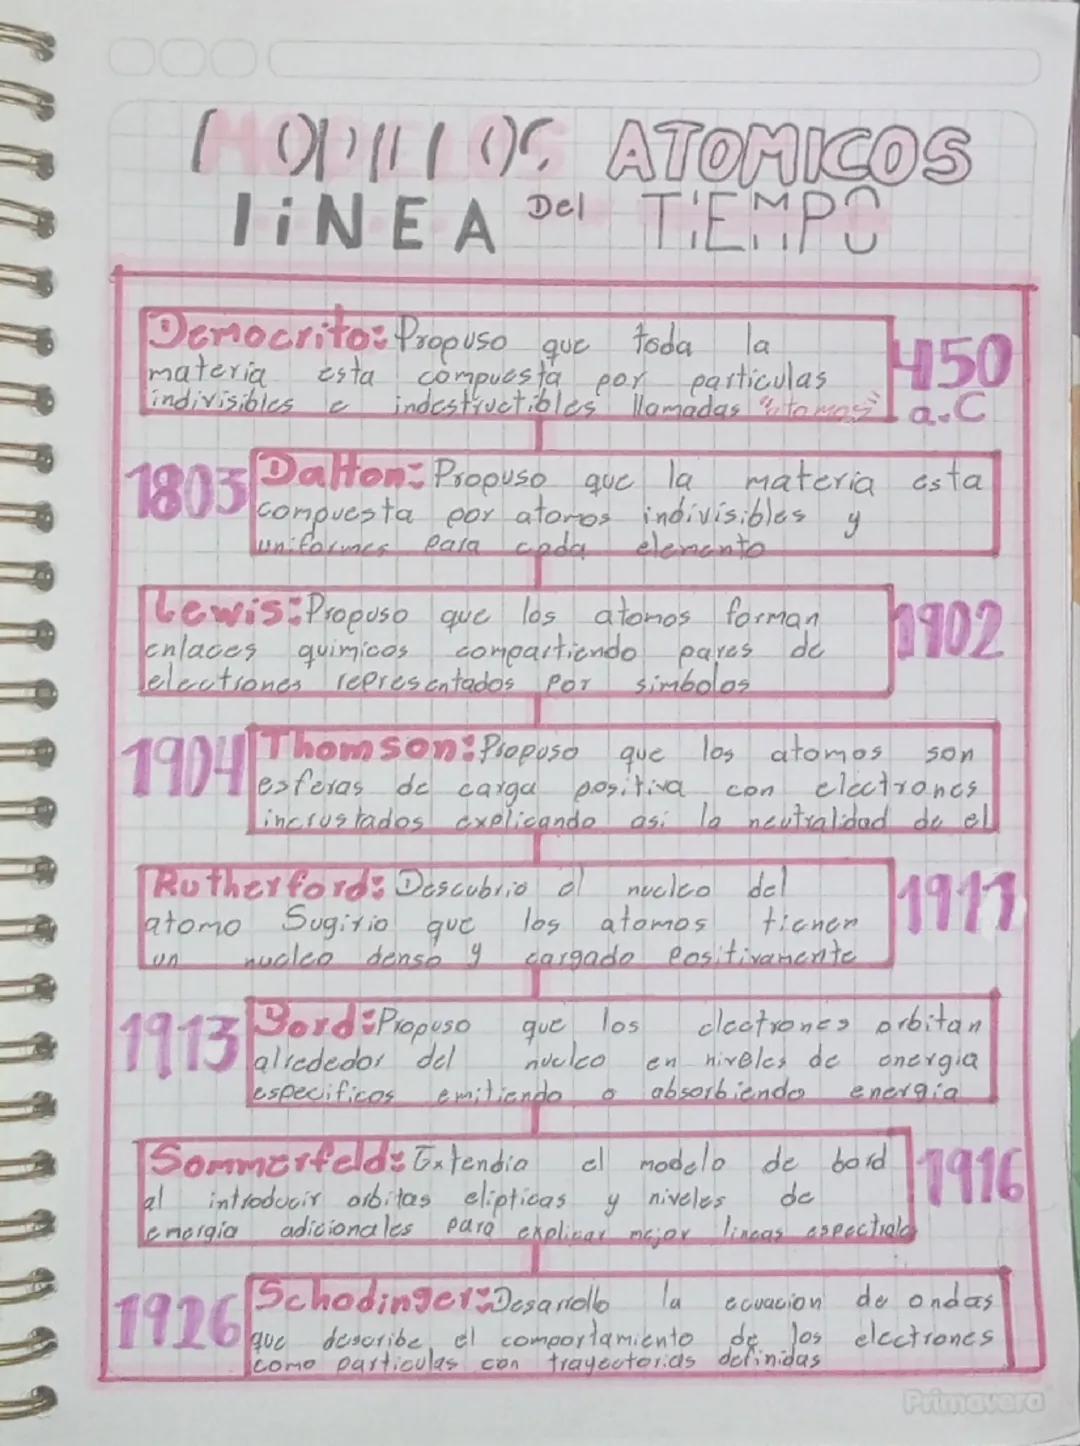 MODELOS ATOMICOS
LiNEA Del TiEMPO
Democrito: Propuso que toda la
materia esta compuesta por particulas
indivisibles e indestructibles llamadas "atomos"
450
a.C
1803
Dalton: Propuso que la materia esta
compuesta por atomos indivisibles y
uniformes para cada elemento
Lewis: Propuso que los atomos forman
enlaces quimicos compartiendo pares de
electrones representados por simbolos
1902
1904
Thomson: Propuso que los atomos son
esferas de carga positiva con electrones
incrustados explicando asi la neutralidad de el
Rutherford: Descubrio el nucleo del
atomo Sugirio que los atomos tienen
un nucleo denso y cargado Positivamente
1911
1913
Bord: Propuso que los electrones orbitan
alrededor del nucleo en niveles de energia
especificos emitiendo o absorbiendo energia
Sommerfeld: Extendia el modelo de bord
al introducir orbitas elipticas y niveles de
energia adicionales para explicar mejor lineas espectrales
1916
1926
Schodinger: Desarrollo la ecuacion de ondas
que describe el comportamiento de los electrones
como particulas con trayectorias definidas
Primavera